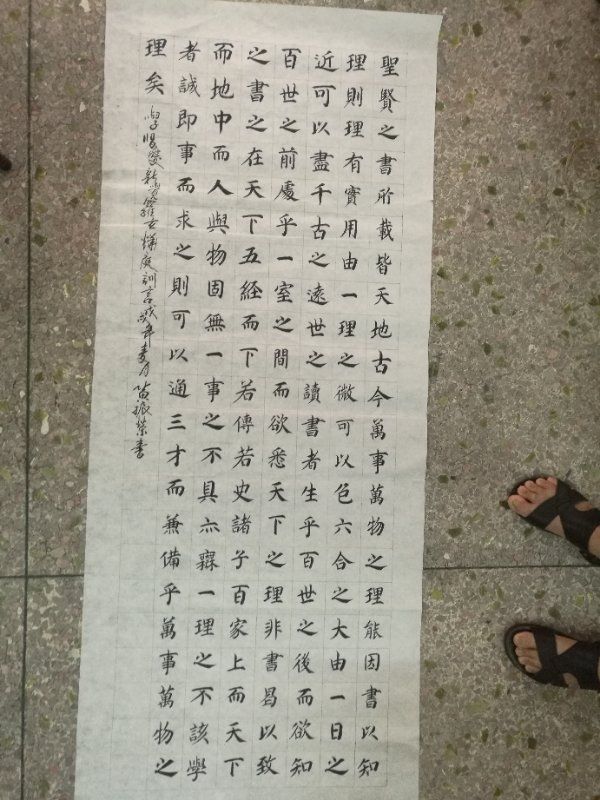 聖賢之書所載皆天地古今萬事萬物之理能因書以知
理則理有實用由一理之微可以包六合之大由一日之
近可以盡千古之遠世之讀書者生乎百世之後而欲知
百世之前處乎一室之間而欲悉天下之理非書曷以致
之書之在天下五經而下若傳若史諸子百家上而天下
而地中而人與物固無一事之不具亦無一理之不該學
者誠即事而求之則可以通三才而兼備乎萬事萬物之
理矣
愛新覺羅玄燁庭訓言戊年夏月振榮書